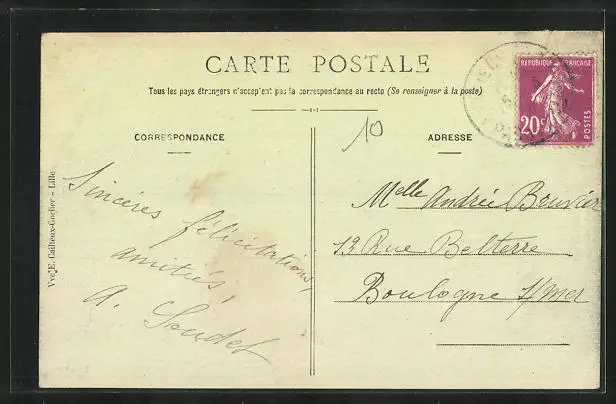 CARTE POSTALE
Tous les pays étrangers n'acceptent pas la correspondance au recto (Se renseigner à la poste)
RÉPUBLIQUE FRANÇAISE
20c
POSTES
10
CORRESPONDANCE
ADRESSE
Sincères félicitations
amitiés,
A. Soudet
Melle Andrée Bruvier
13 Rue Belterre
Boulogne s/mer
Vve E. Cailteux-Gorlier - Lille